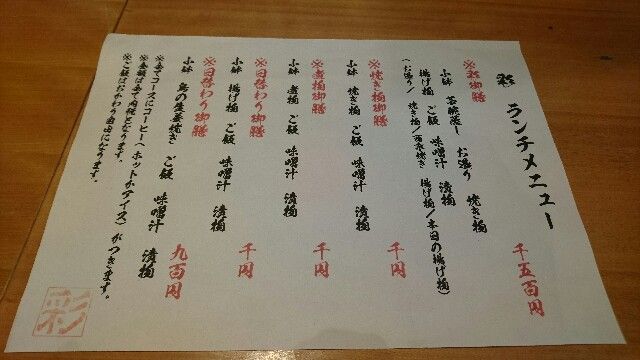 彩 ランチメニュー
※彩御膳 千五百円
小鉢 茶碗蒸し お造り 焼き物
揚げ物 ご飯 味噌汁 漬物
(お造り/ 焼き物/西京焼き 揚げ物/本日の揚げ物)
※焼き物御膳 千円
小鉢 焼き物 ご飯 味噌汁 漬物
※煮物御膳 千円
小鉢 煮物 ご飯 味噌汁 漬物
※日替わり御膳 千円
小鉢 揚げ物 ご飯 味噌汁 漬物
※日替わり御膳 九百円
小鉢 鳥の生姜焼き ご飯 味噌汁 漬物
※全てコースにコーヒー(ホットかアイス)がつきます。
※金額は全て内税となります。
※ご飯はおかわり自由になります。
彩